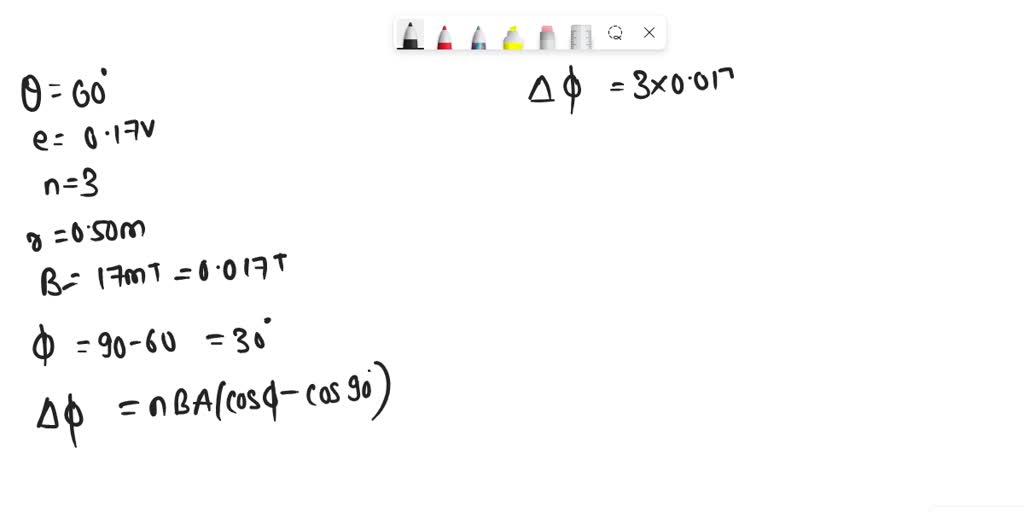 θ = 60°
e = 0.17V
n=3
r = 0.50m
B = 17mT = 0.017T
ϕ = 90-60 = 30°
Δϕ = nBA(cosϕ - cos90°)
Δϕ = 3×0.017